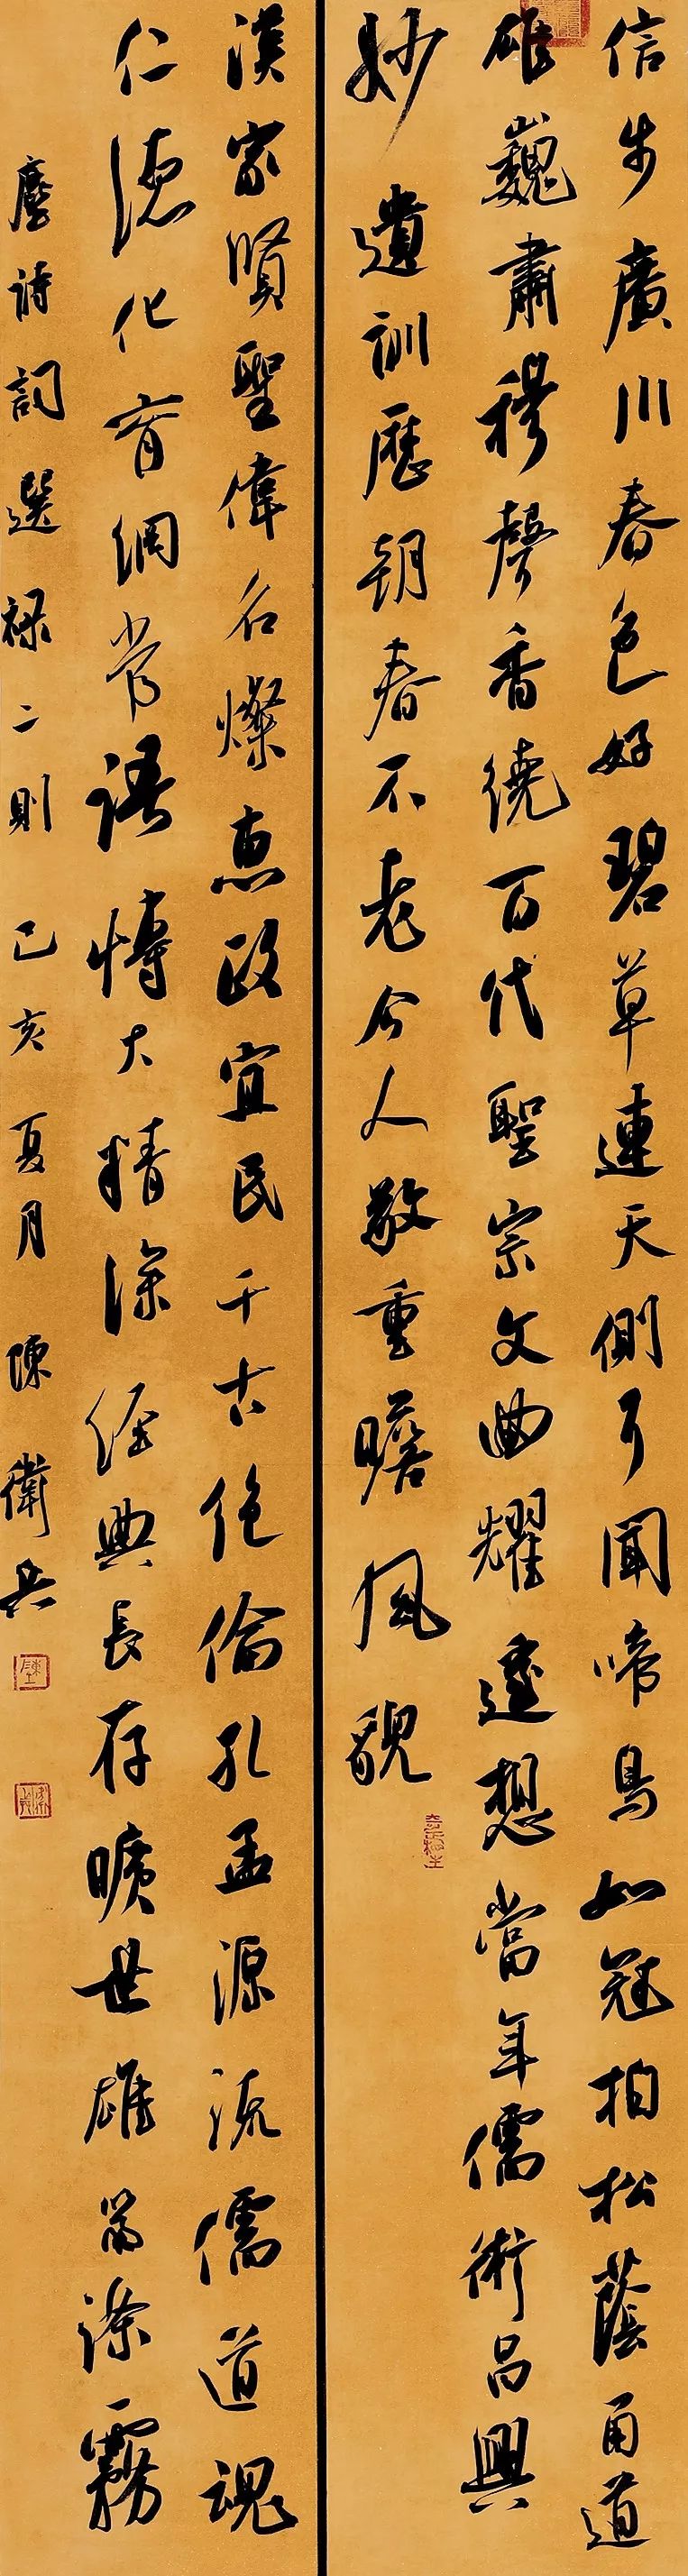 信步廣川春色好碧草連天側耳聞啼鳥如冠柏松蔭甬道
雄巍肅穆聲香繞百代聖宗文曲耀遥想當年儒術昌興
妙遺訓歷朝春不老今人敬重瞻風貌
漢家賢聖偉名燦惠政宜民千古絕倫孔孟源流儒道魂
仁德化育綱常語博大精深經典長存曠世雄篇滌霧
塵詩詞選禄二則 己亥夏月 陳衛兵